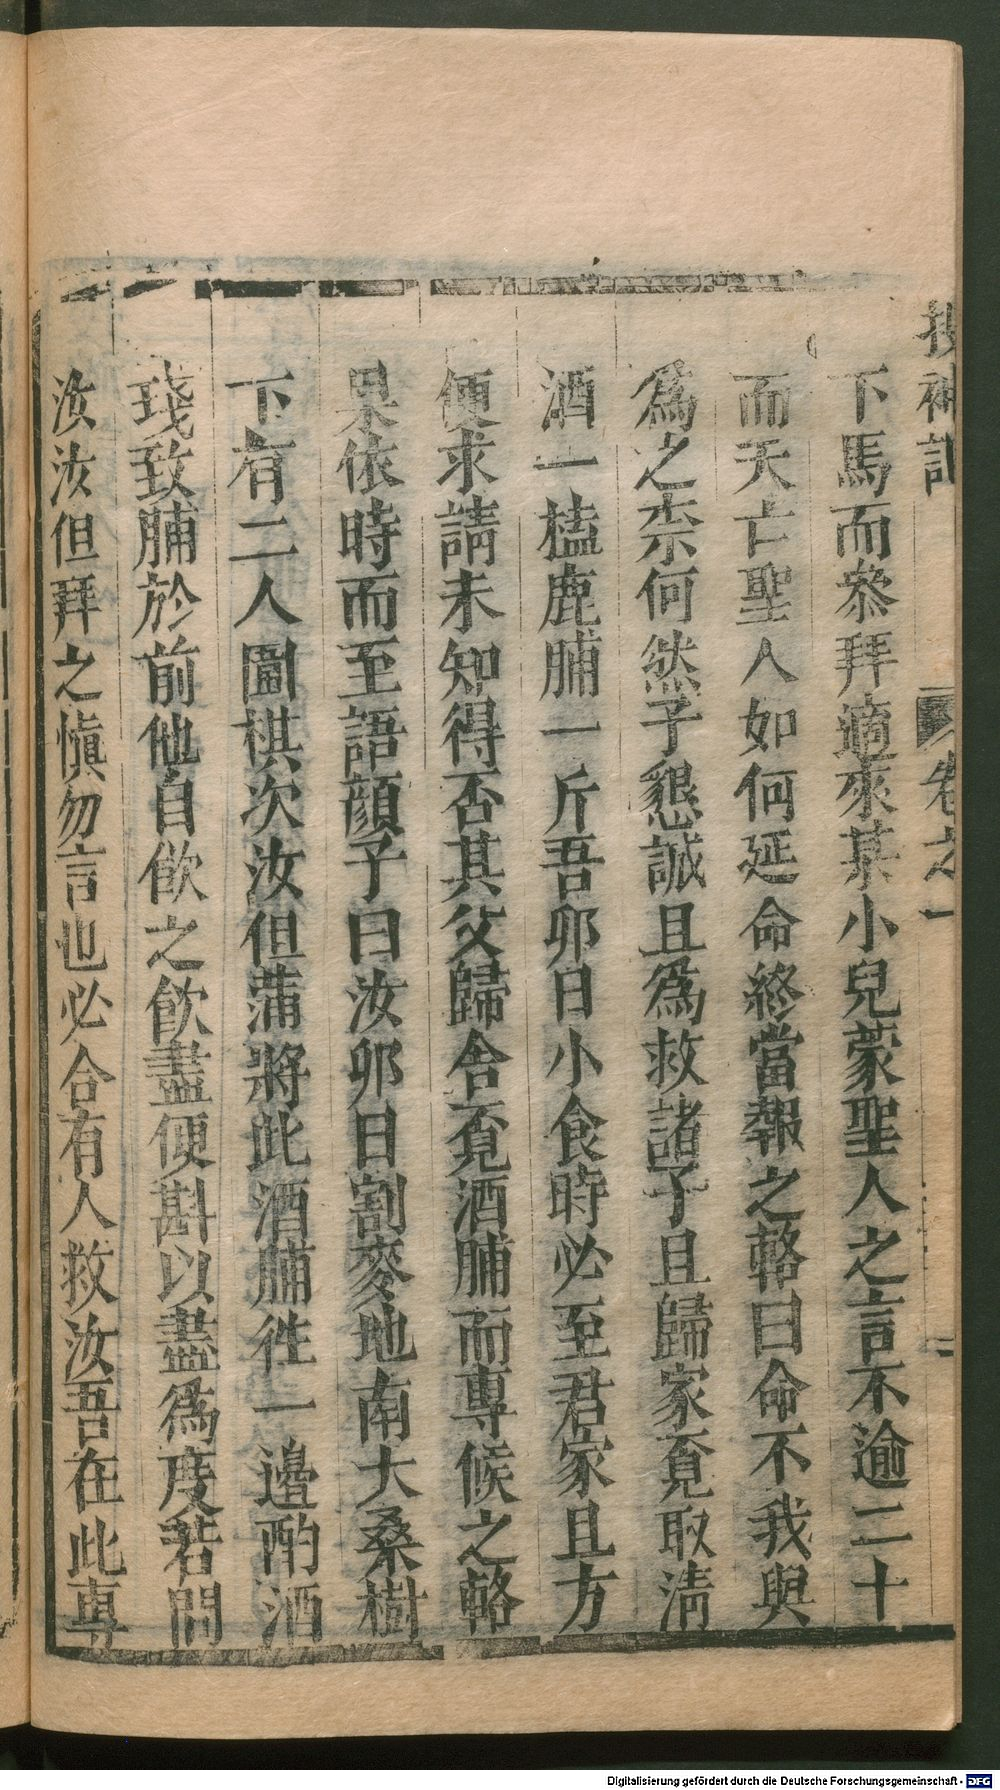 搜神記 卷之一 二
下馬而叅拜適來某小兒蒙聖人之言不逾二十
而夭亡聖人如何延命終當報之輅曰命不我與
爲之柰何然子懇誠且爲救諸子且歸家覓取淸
酒一榼鹿脯一斤吾卯日小食時必至君家且方
便求請未知得否其父歸舍覓酒脯而專候之輅
果依時而至語顔子曰汝卯日割麥地南大桑樹
下有二人圍棋次汝但蒲將此酒脯徃一邊酌酒
琖致脯於前他自飮之飮盡便斟以盡爲度若問
汝汝但拜之愼勿言也必合有人救汝吾在此專
Digitalisierung gefördert durch die Deutsche Forschungsgemeinschaft - DFG